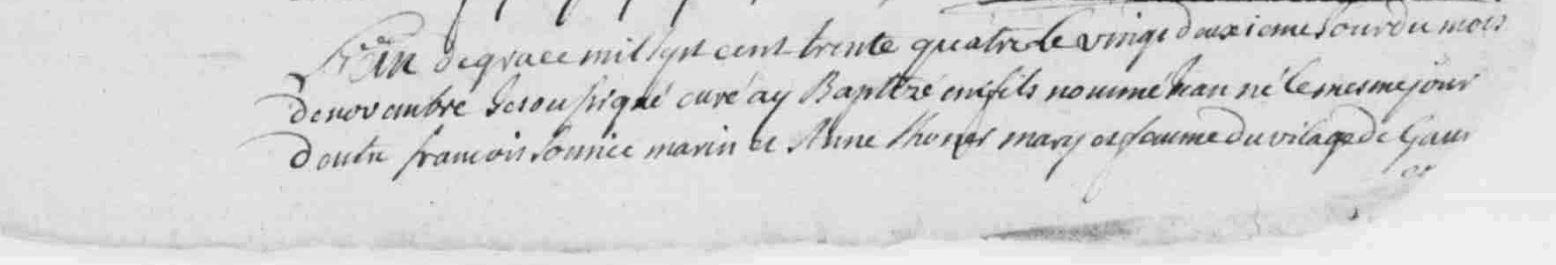 L'an de grace mil sept cent trente quatre le vingt deuxieme Jour du mois
de novembre Je sousigné curé ay Baptizé un fils nommé Jean né le mesme jour
d'entre francois marin et Anne mary et femme du vilage de